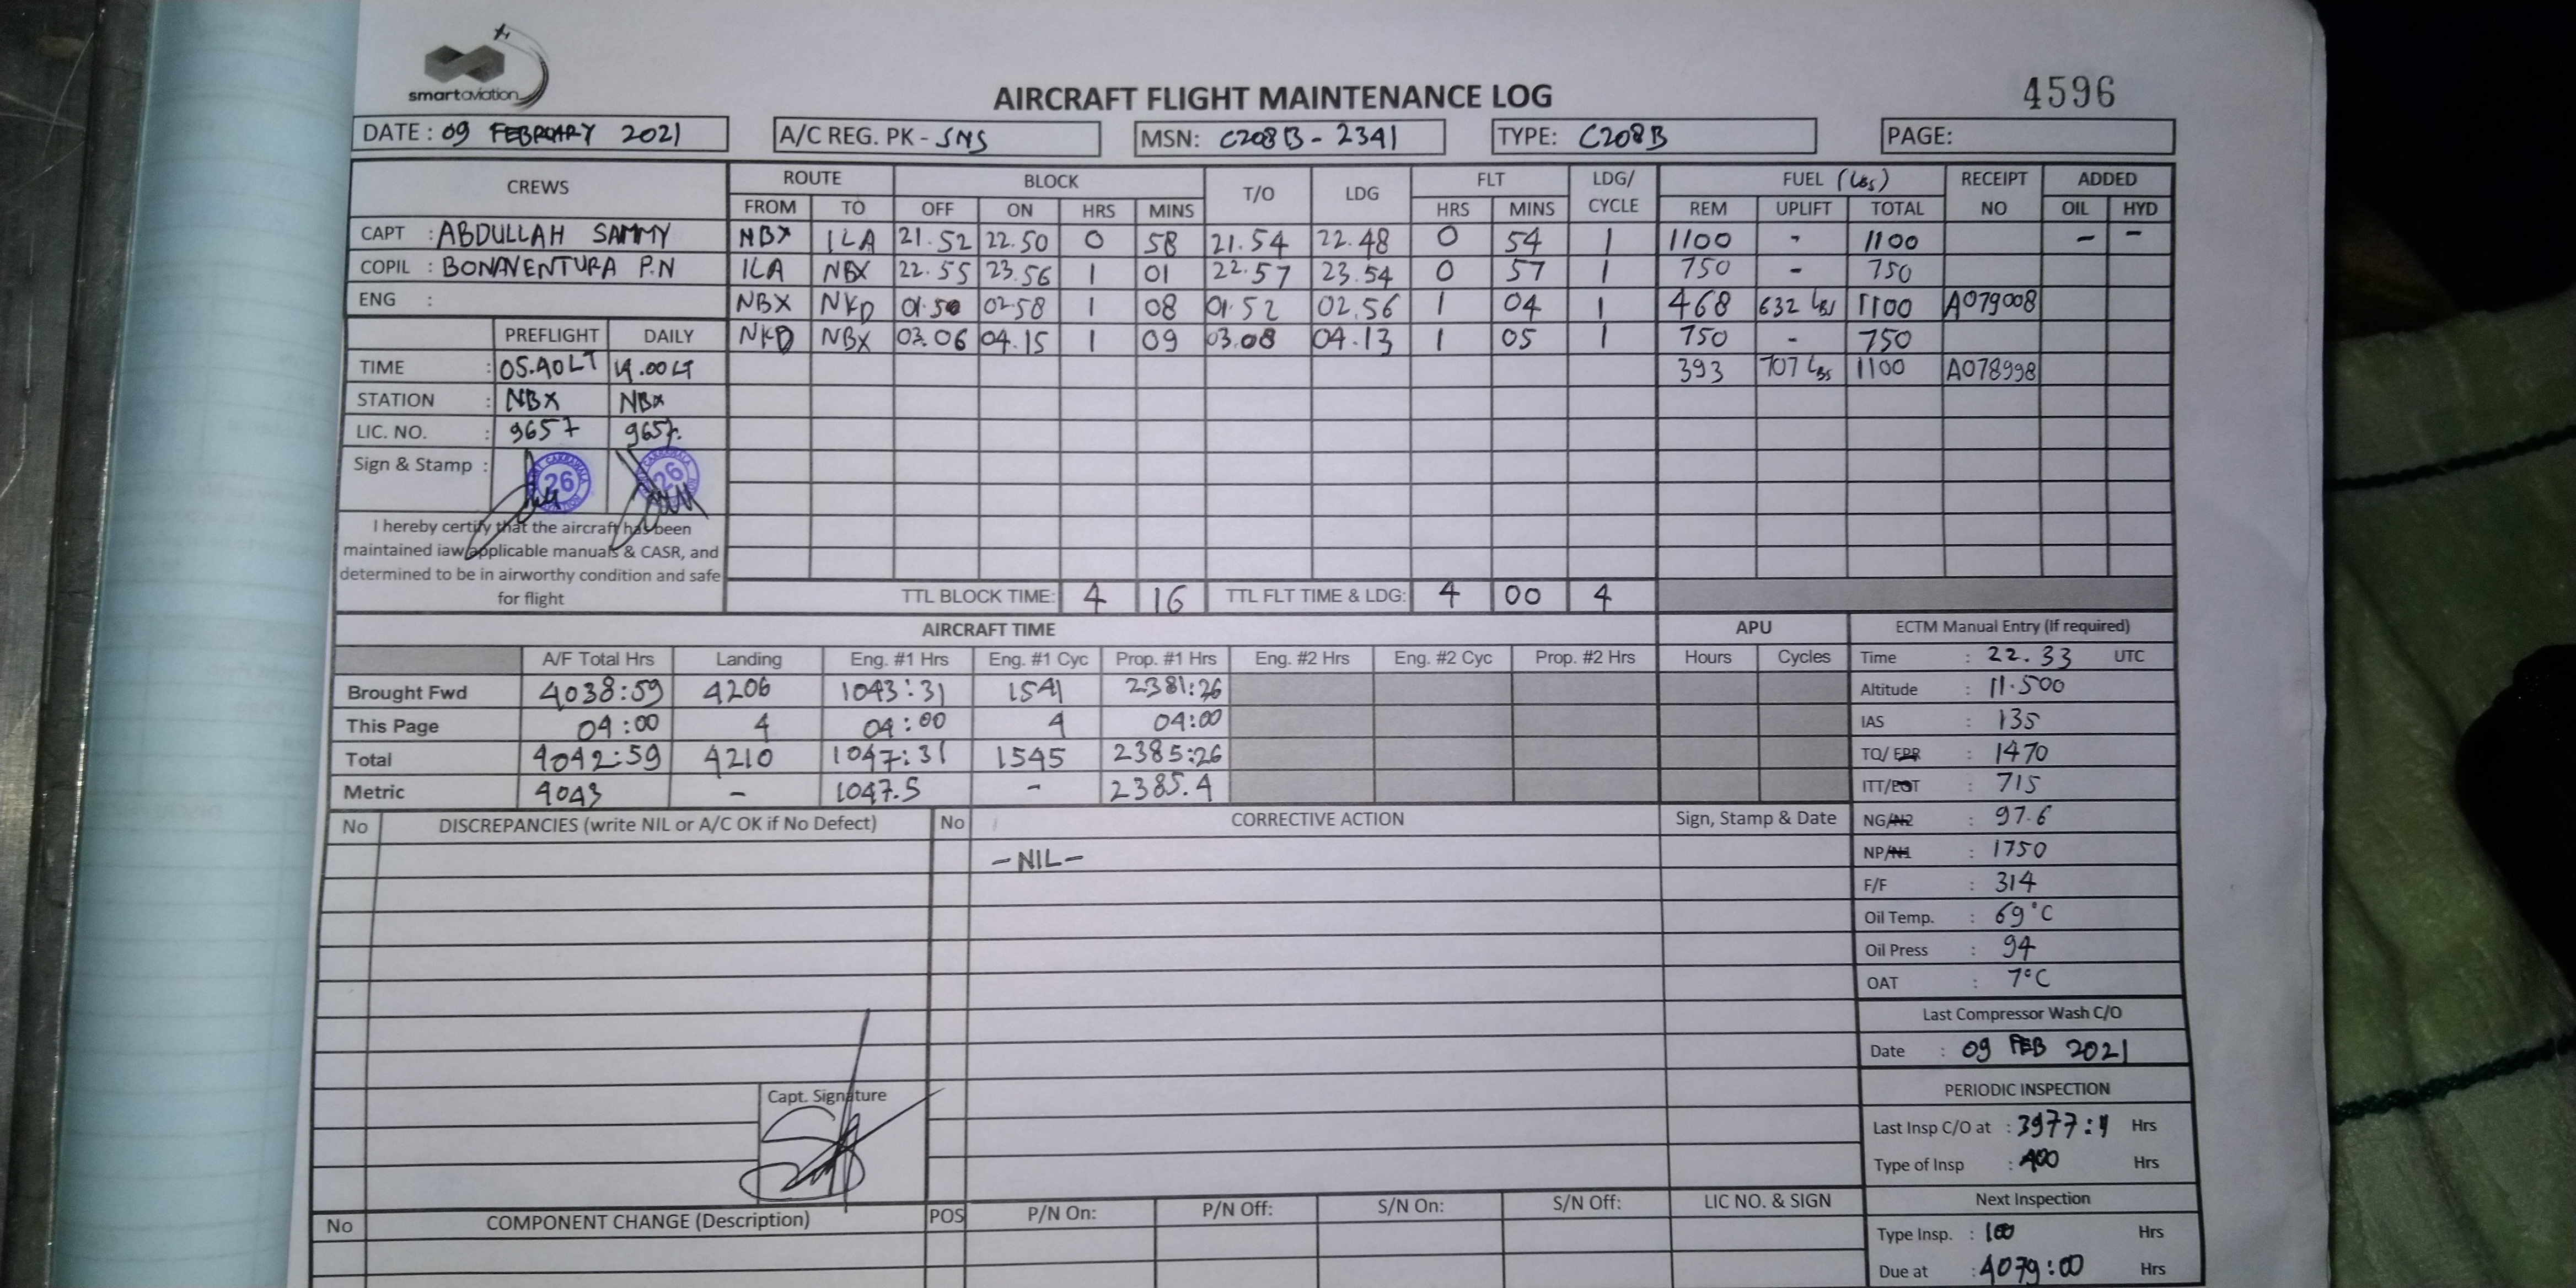 smartaviation
AIRCRAFT FLIGHT MAINTENANCE LOG
4596
DATE : 09 FEBRUARY 2021 A/C REG. PK - SNS MSN: C208B - 2341 TYPE: C208B PAGE:
CREWS ROUTE BLOCK T/O LDG FLT LDG/ CYCLE FUEL (Lbs) RECEIPT NO ADDED
FROM TO OFF ON HRS MINS HRS MINS REM UPLIFT TOTAL OIL HYD
CAPT : ABDULLAH SAMMY NBX ILA 21.52 22.50 0 58 21.54 22.48 0 54 1 1100 - 1100 - -
COPIL : BONAVENTURA P.N ILA NBX 22.55 23.56 1 01 22.57 23.54 0 57 1 750 - 750
ENG : NBX NKD 01.50 02.58 1 08 01.52 02.56 1 04 1 468 632 Lbs 1100 A079008
PREFLIGHT DAILY NKD NBX 03.06 04.15 1 09 03.08 04.13 1 05 1 750 - 750
TIME : 05.40 LT 14.00 LT 393 707 Lbs 1100 A078998
STATION : NBX NBX
LIC. NO. : 9657 9657.
Sign & Stamp : 26 26
I hereby certify that the aircraft has been
maintained iaw applicable manuals & CASR, and
determined to be in airworthy condition and safe
for flight
TTL BLOCK TIME: 4 16 TTL FLT TIME & LDG: 4 00 4
AIRCRAFT TIME APU ECTM Manual Entry (If required)
A/F Total Hrs Landing Eng. #1 Hrs Eng. #1 Cyc Prop. #1 Hrs Eng. #2 Hrs Eng. #2 Cyc Prop. #2 Hrs Hours Cycles Time : 22.33 UTC
Brought Fwd 4038:59 4206 1043:31 1541 2381:26 Altitude : 11.500
This Page 04:00 4 04:00 4 04:00 IAS : 135
Total 4042:59 4210 1047:31 1545 2385:26 TQ/EPR : 1470
Metric 4043 - 1047.5 - 2385.4 ITT/EGT : 715
No DISCREPANCIES (write NIL or A/C OK if No Defect) No CORRECTIVE ACTION Sign, Stamp & Date NG/N2 : 97.6
- NIL - NP/N1 : 1750
F/F : 314
Oil Temp. : 69°C
Oil Press : 94
OAT : 7°C
Last Compressor Wash C/O
Date : 09 FEB 2021
Capt. Signature PERIODIC INSPECTION
Last Insp C/O at : 3977: Hrs
Type of Insp : 400 Hrs
No COMPONENT CHANGE (Description) POS P/N On: P/N Off: S/N On: S/N Off: LIC NO. & SIGN Next Inspection
Type Insp. : 100 Hrs
Due at : 4079:00 Hrs